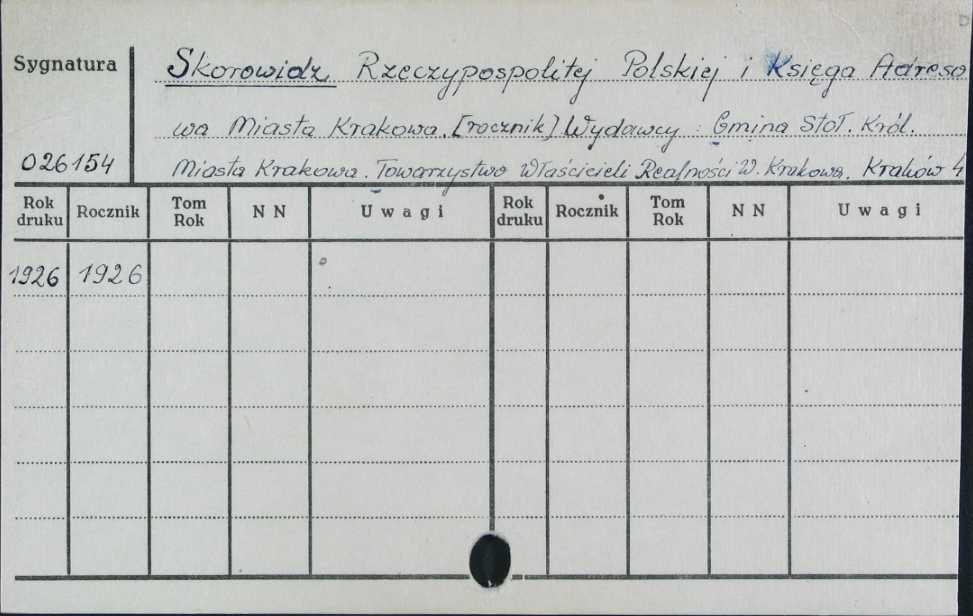 Sygnatura
Skorowidz Rzeczypospolitej Polskiej i Księga Adreso
wa Miasta Krakowa. [rocznik] Wydawcy : Gmina Stoł. Król.
026154
Miasta Krakowa. Towarzystwo Właścicieli Realności W. Krakowa. Kraków 4
Rok druku Rocznik Tom Rok N N Uwagi Rok druku Rocznik Tom Rok N N Uwagi
1926 1926